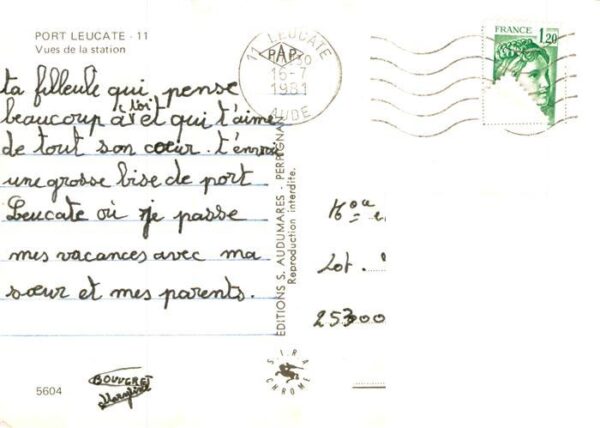 PORT LEUCATE - 11
Vues de la station
11 LEUCATE
15-7
1981
AUDE
FRANCE 1,20
ta filleule qui pense
beaucoup à toi et qui t'aime
de tout son cœur. t'envoie
une grosse bise de port
Leucate où je passe
mes vacances avec ma
sœur et mes parents.
EDITIONS S. AUDUMARES - PERPIGNAN
Reproduction interdite.
Lot.
25300
SIRA
CHROME
5604
BOUVERET